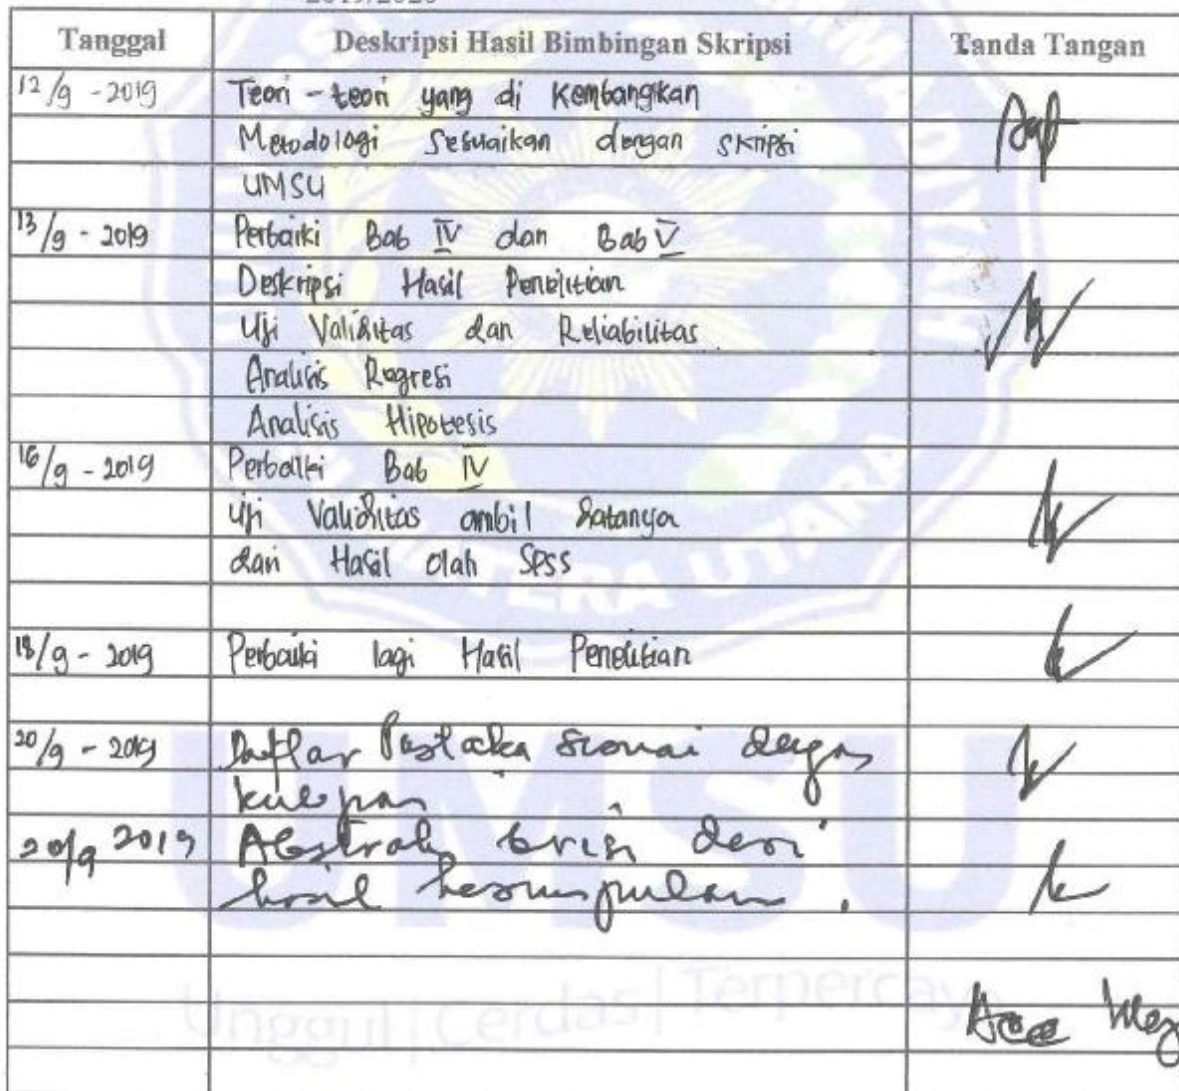 2019/2020
Tanggal Deskripsi Hasil Bimbingan Skripsi Tanda Tangan
12/9 - 2019 Teori - teori yang di Kembangkan
Metodologi Sesuaikan dengan Skripsi
UMSU
13/9 - 2019 Perbaiki Bab IV dan Bab V
Deskripsi Hasil Penelitian
Uji Validitas dan Reliabilitas
Analisis Regresi
Analisis Hipotesis
16/9 - 2019 Perbaiki Bab IV
Uji Validitas ambil datanya
dari Hasil Olah SPSS
18/9 - 2019 Perbaiki lagi Hasil Penelitian
20/9 - 2019 Daftar Pustaka sesuai dengan
kutipan
20/9 2019 Abstrak berisi dari
hasil kesimpulan .
Acc
UMSU
Unggul | Cerdas | Terpercaya